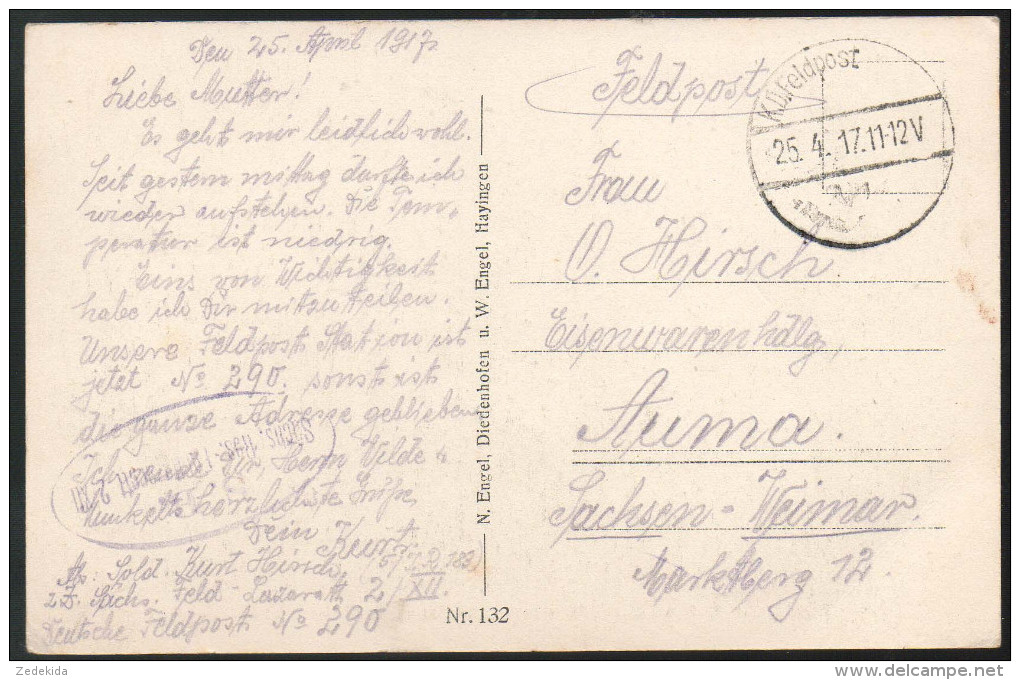 Den 25. April 1917.
Liebe Mutter!
Es geht mir leidlich wohl.
Seit gestern mittag durfte ich
wieder aufstehen. Die Tem-
peratur ist niedrig.
Eins von Wichtigkeit
habe ich Dir mitzuteilen.
Unsere Feldpost Station ist
jetzt No 290. sonst ist
die ganze Adresse geblieben
Ich Dir, Herrn
herzlichste Grüße,
Dein Kurt.
Abs: Sold. Kurt Hirsch,
z.Z. Sächs. Feld-Lazarett 2/XII.
Deutsche Feldpost No 290
N. Engel, Diedenhofen u. W. Engel, Hayingen
Nr. 132
Feldpost
K.D.Feldpost
25. 4. 17. 11-12V
Frau
O. Hirsch.
Eisenwarenhdlg,
Auma.
Sachsen-Weimar.
Marktberg 12.
Zedekida
delcampe.net